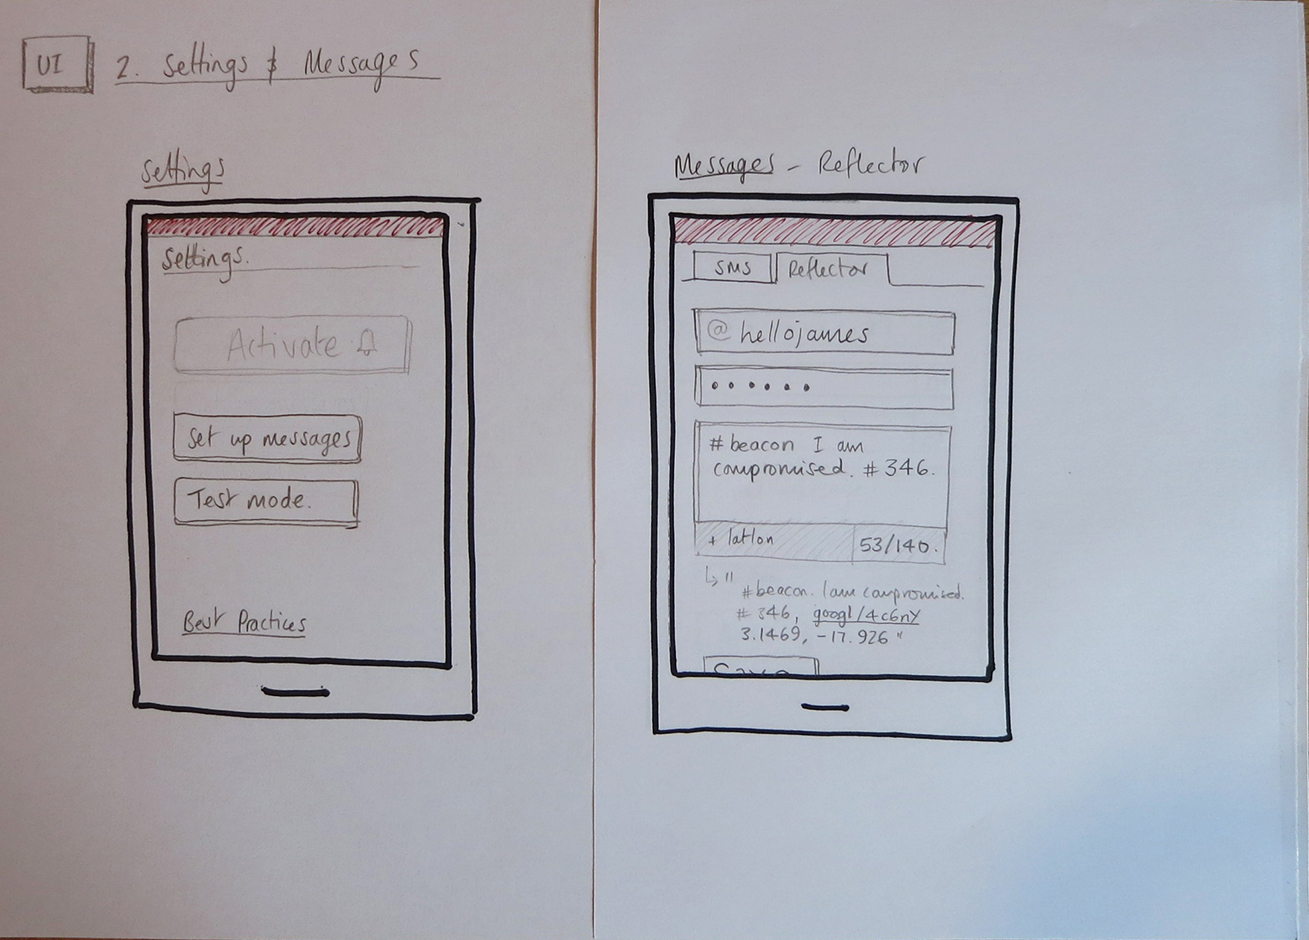 UI
2. Settings & Messages
Settings
Settings.
Activate
Set up messages
Test mode.
Best Practices
Messages - Reflector
SMS
Reflector
@ hellojames
• • • • • •
#beacon I am
compromised. #346.
+ latlon
53/140.
"
#beacon. I am compromised.
#346, googl/4c6nY
3.1469, -17.926"
Save